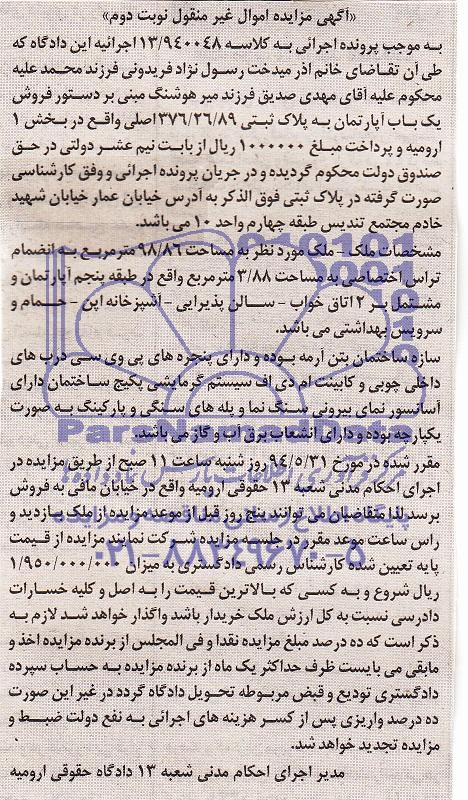 «آگهی مزایده اموال غیر منقول نوبت دوم»
به موجب پرونده اجرائی به کلاسه ۱۳/۹۴۰۰۴۸ اجرائیه این دادگاه که
طی آن تقاضای خانم آذر میدخت رسول نژاد فریدونی فرزند محمد علیه
محکوم علیه آقای مهدی صدیق فرزند میر هوشنگ مبنی بر دستور فروش
یک باب آپارتمان به پلاک ثبتی ۳۷۶/۲۶/۸۹ اصلی واقع در بخش ۱
ارومیه و پرداخت مبلغ ۱۰۰۰۰۰۰ ریال از بابت نیم عشر دولتی در حق
صندوق دولت محکوم گردیده و در جریان پرونده اجرائی و وفق کارشناسی
صورت گرفته در پلاک ثبتی فوق الذکر به آدرس خیابان عمار خیابان شهید
خادم مجتمع تندیس طبقه چهارم واحد ۱۰ می باشد.
مشخصات ملک - ملک مورد نظر به مساحت ۹۸/۸۶ متر مربع به انضمام
تراس اختصاصی به مساحت ۳/۸۸ مترمربع واقع در طبقه پنجم آپارتمان و
مشتمل بر ۲ اتاق خواب - سالن پذیرایی - آشپزخانه اپن - حمام و
سرویس بهداشتی می باشد.
سازه ساختمان بتن آرمه بوده و دارای پنجره های پی وی سی درب های
داخلی چوبی و کابینت ام دی اف سیستم گرمایشی پکیج ساختمان دارای
آسانسور نمای بیرونی سنگ نما و پله های سنگی و پارکینگ به صورت
یکپارچه بوده و دارای انشعاب برق آب و گاز می باشد.
مقرر شده در مورخ ۹۴/۵/۳۱ روز شنبه ساعت ۱۱ صبح از طریق مزایده در
اجرای احکام مدنی شعبه ۱۳ حقوقی ارومیه واقع در خیابان مافی به فروش
برسد لذا متقاضیان می توانند پنج روز قبل از موعد مزایده از ملک بازدید و
راس ساعت موعد مقرر در جلسه مزایده شرکت نمایند مزایده از قیمت
پایه تعیین شده کارشناس رسمی دادگستری به میزان ۱/۹۵۰/۰۰۰/۰۰۰
ریال شروع و به کسی که بالاترین قیمت را به اصل و کلیه خسارات
دادرسی نسبت به کل ارزش ملک خریدار باشد واگذار خواهد شد لازم به
ذکر است که ده درصد مبلغ مزایده نقدا و فی المجلس از برنده مزایده اخذ و
مابقی می بایست ظرف حداکثر یک ماه از برنده مزایده به حساب سپرده
دادگستری تودیع و قبض مربوطه تحویل دادگاه گردد در غیر این صورت
ده درصد واریزی پس از کسر هزینه های اجرائی به نفع دولت ضبط و
مزایده تجدید خواهد شد.
مدیر اجرای احکام مدنی شعبه ۱۳ دادگاه حقوقی ارومیه
ParsNamadData
۰۲۱-۸۸۳۴۹۶۷۰-۵